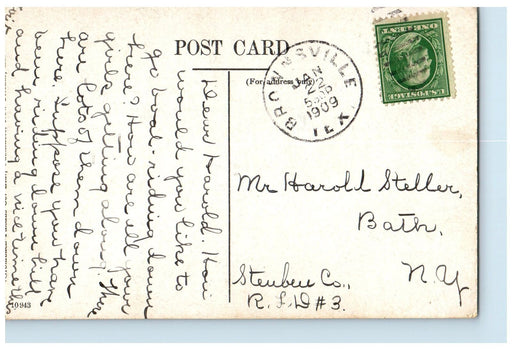 POST CARD
(For address only)
BROWNSVILLE
JAN
5 PM
1909
TEX
ONE CENT
U.S. POSTAGE
Mr Harold Steller,
Bath,
Steuben Co., N.Y.
R.F.D #3.
Dear Harold. How
would you like to
go boat-riding down
here? How are all your
girls getting along? There
are lots of them down
here. Suppose you have
been riding down hill
and having a nice time
10943